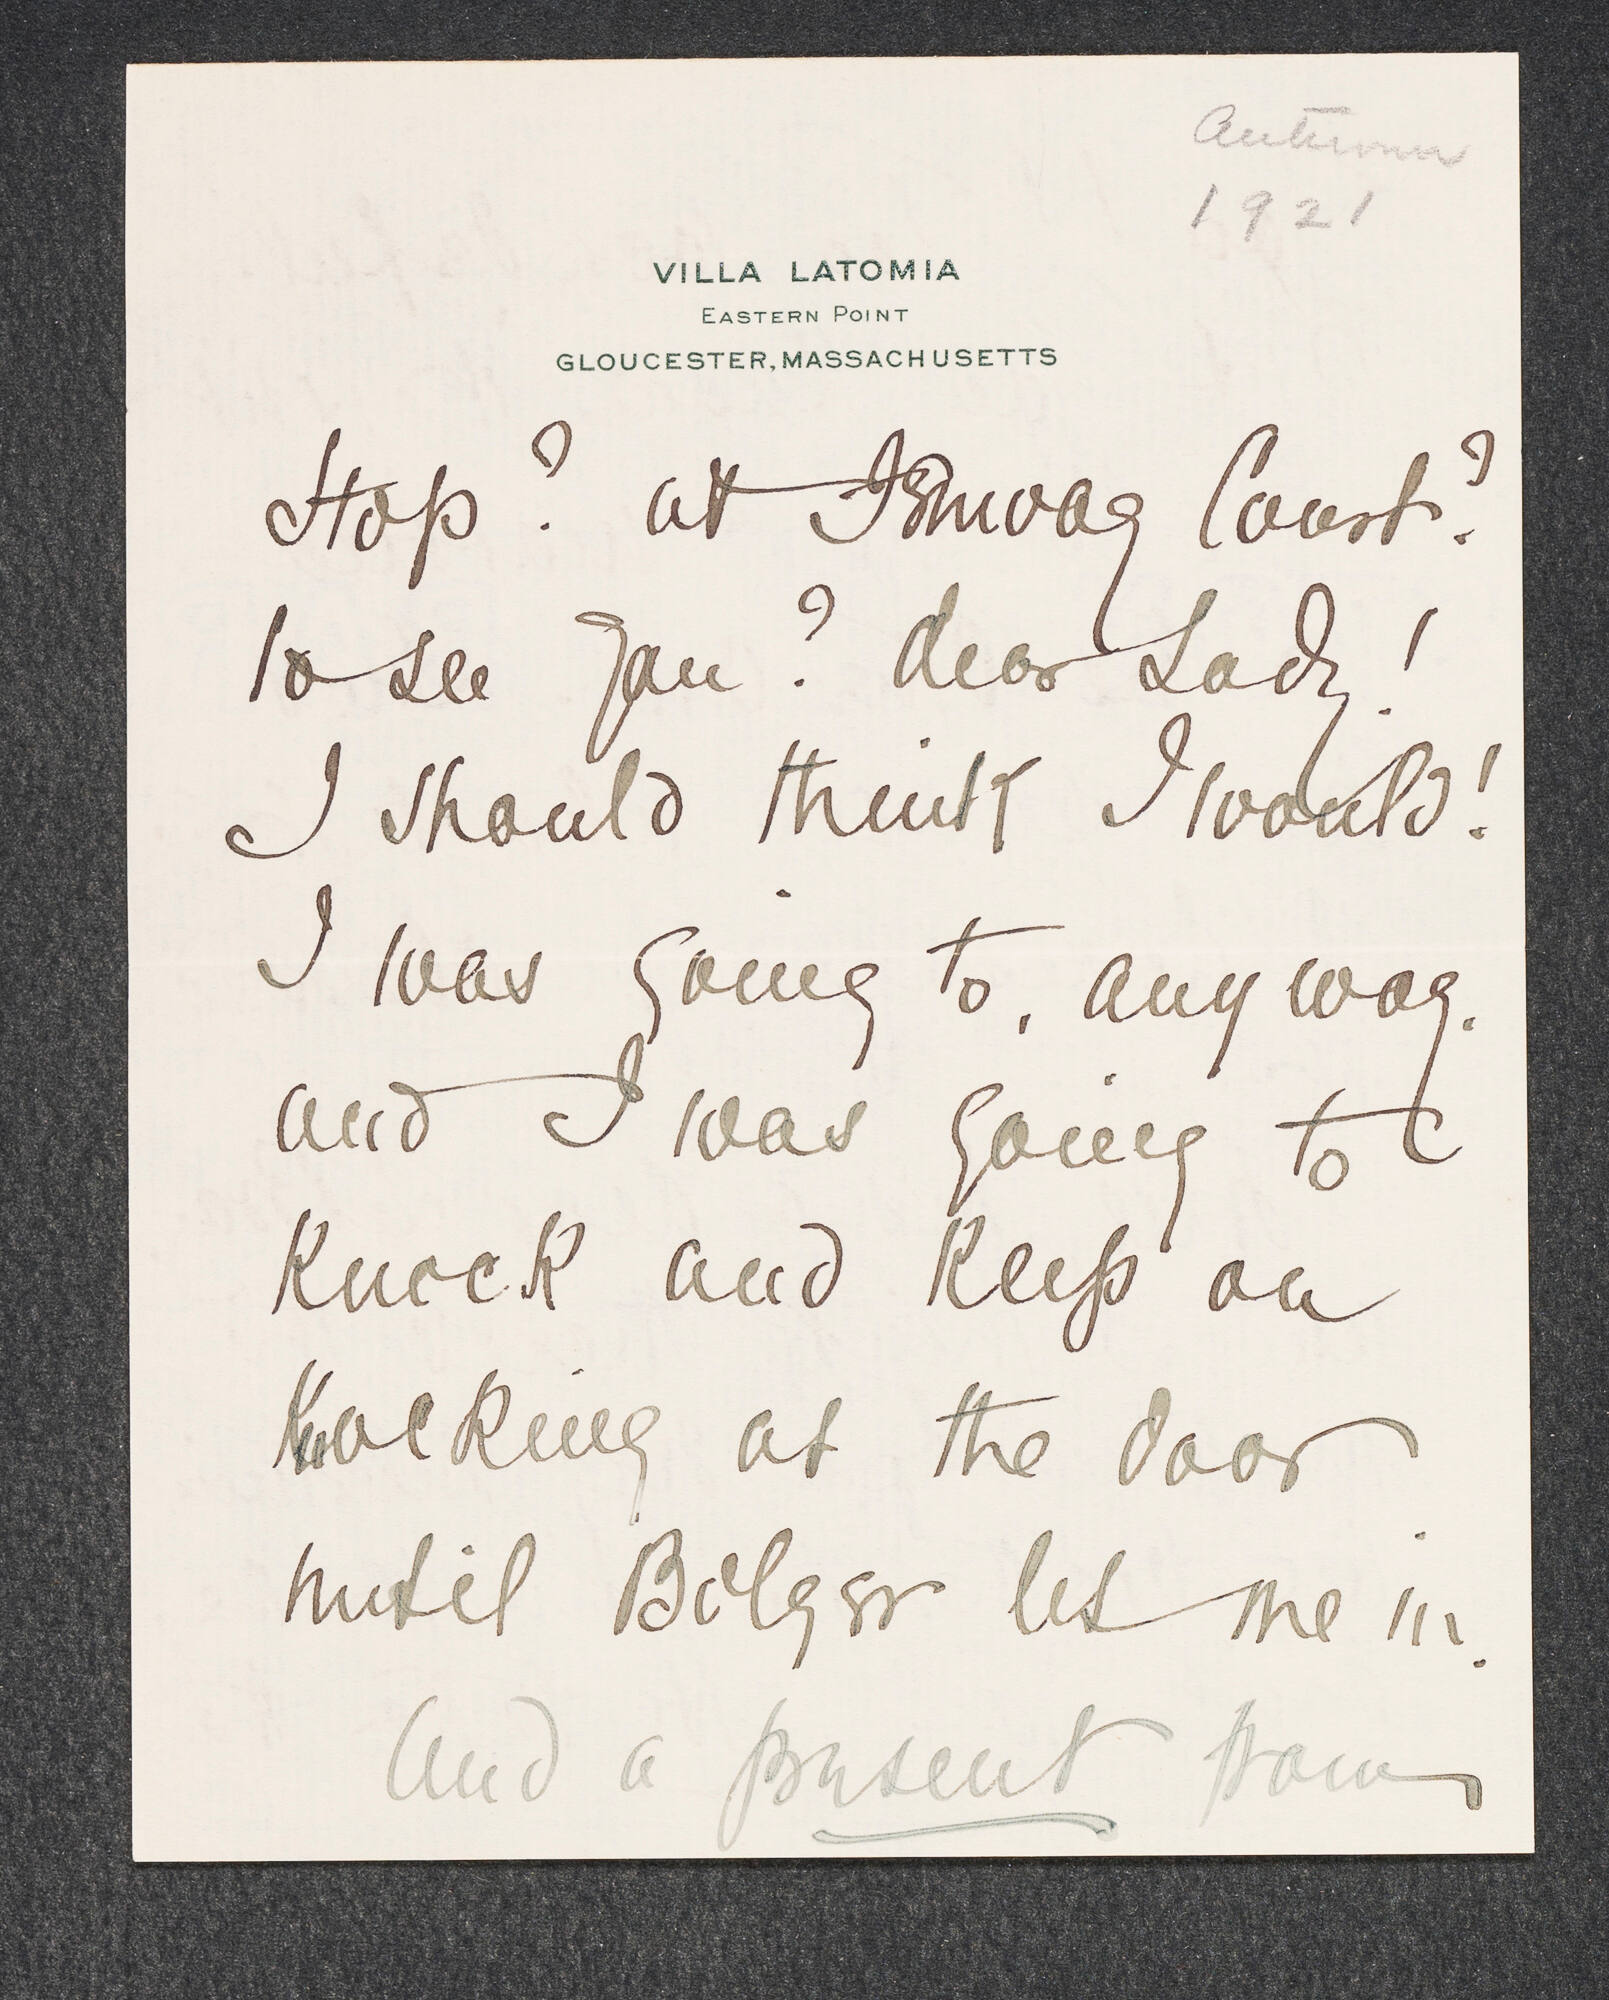 Autumn
1921
VILLA LATOMIA
EASTERN POINT
GLOUCESTER, MASSACHUSETTS
Stop? at Fenway Court?
to see you? dear Lady!
I should think I would!
I was going to, anyway.
and I was going to
knock and keep on
knocking at the door
until Bolger let me in.
And a present from